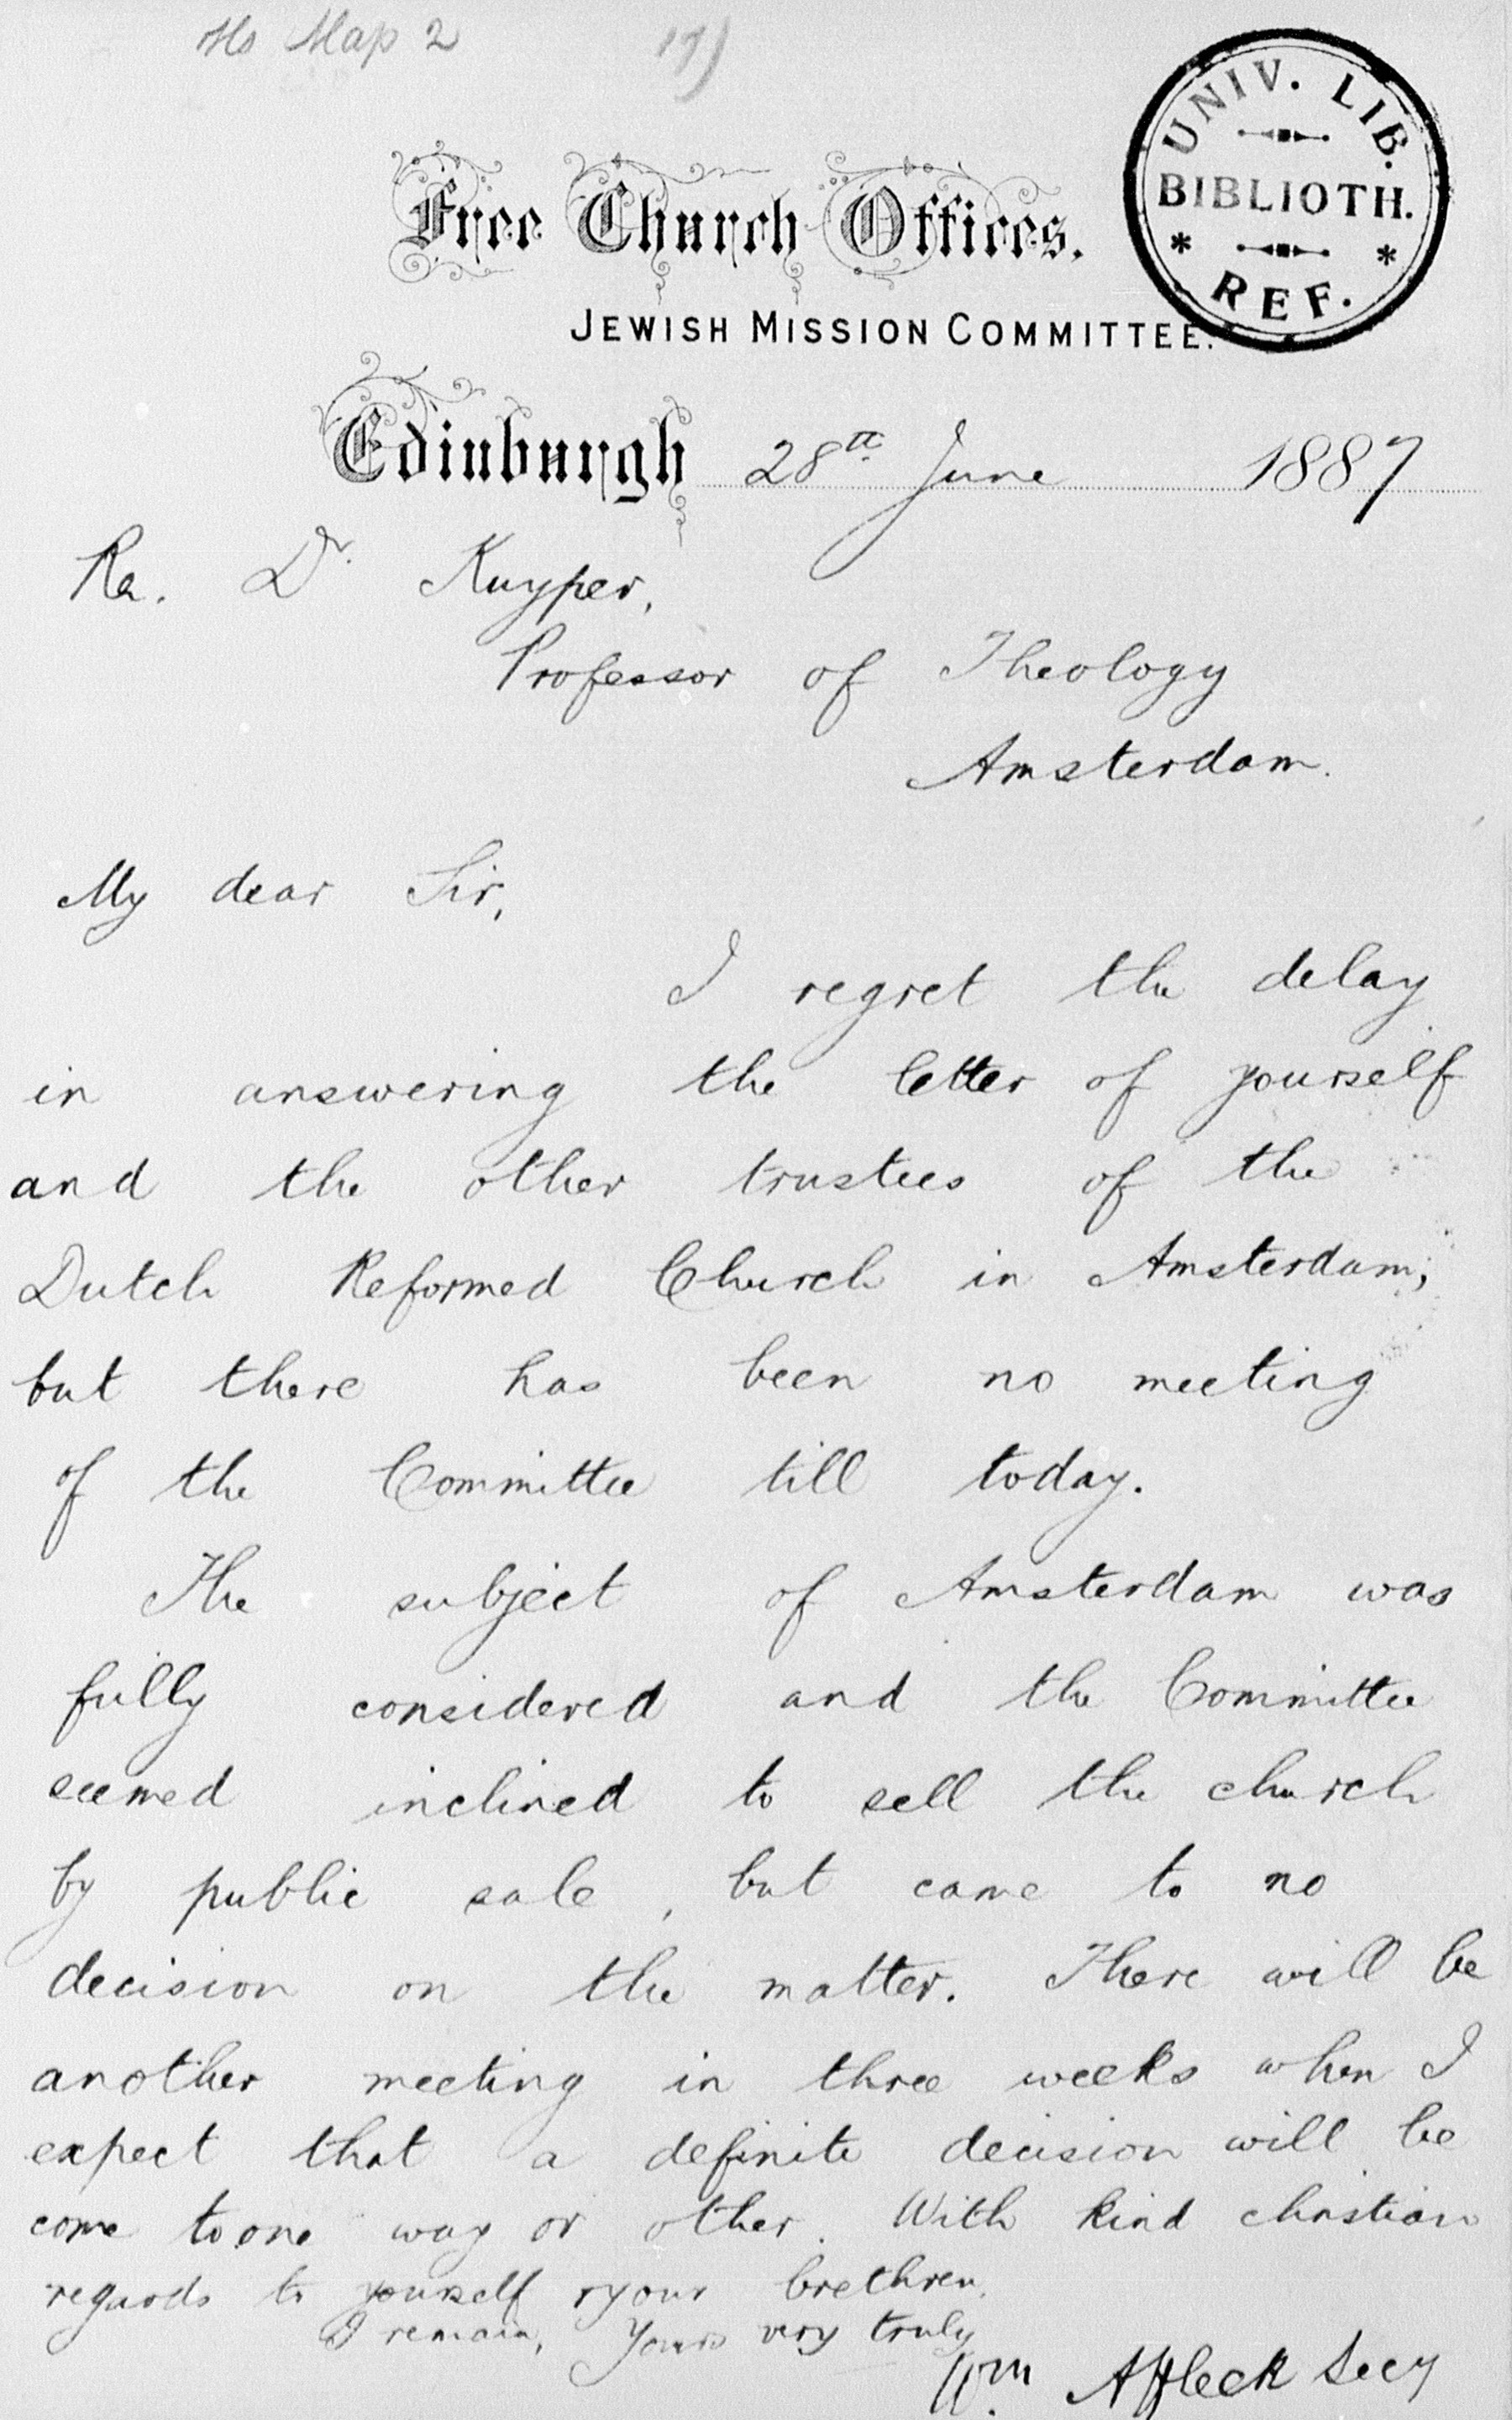 Hs Map 2 17)
UNIV. LIB.
BIBLIOTH.
REF.
Free Church Offices.
JEWISH MISSION COMMITTEE.
Edinburgh 28th June 1887
Re. Dr. Kuyper,
Professor of Theology
Amsterdam.
My dear Sir,
I regret the delay
in answering the letter of yourself
and the other trustees of the
Dutch Reformed Church in Amsterdam,
but there has been no meeting
of the Committee till today.
The subject of Amsterdam was
fully considered and the Committee
seemed inclined to sell the church
by public sale, but came to no
decision on the matter. There will be
another meeting in three weeks when I
expect that a definite decision will be
come to one way or other. With kind christian
regards to yourself & your brethren.
I remain, Yours very truly
Wm Affleck Secy